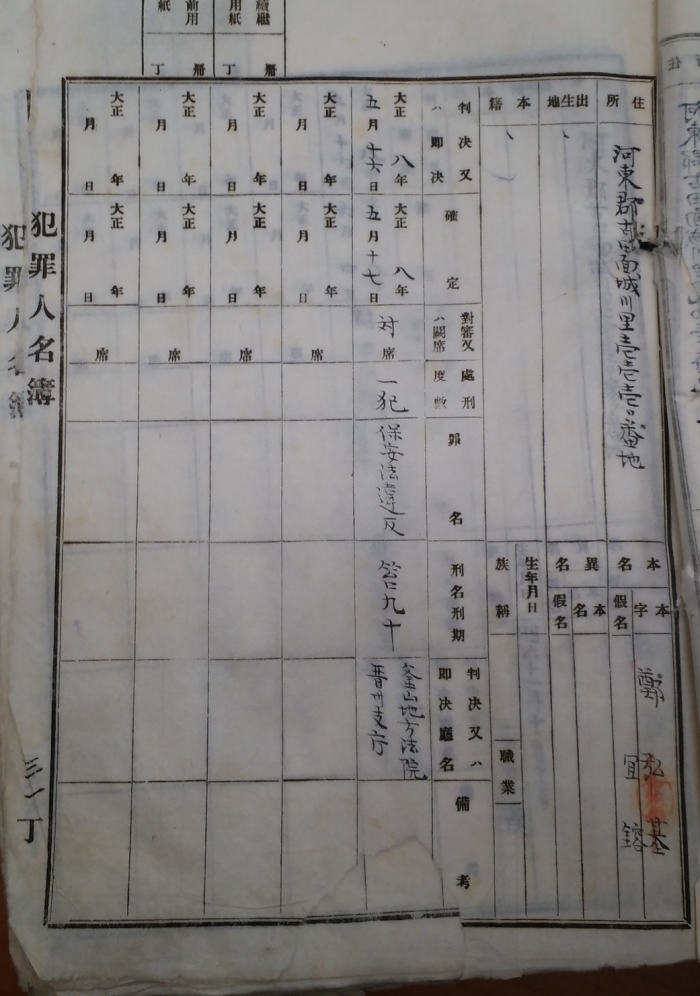 續繼
用紙
冊
丁
前用
紙
冊
丁
住所
河東郡古田面城川里壱壱壱〇番地
出生地
本籍
本名
本字
鄭 弘 基
假名
宜 鎔
異名
本名
假名
生年月日
族稱
職業
判決又
ハ即決
確定
對審又
ハ闕席
處刑
度數
罪名
刑名刑期
判決又ハ
即決廳名
備考
大正八年
五月十六日
大正八年
五月十七日
対席
一犯
保安法違反
笞九十
釜山地方法院
晋州支庁
大正 年
月 日
大正 年
月 日
席
大正 年
月 日
大正 年
月 日
席
大正 年
月 日
大正 年
月 日
席
大正 年
月 日
大正 年
月 日
席
犯罪人名簿
丁
犯罪人名簿